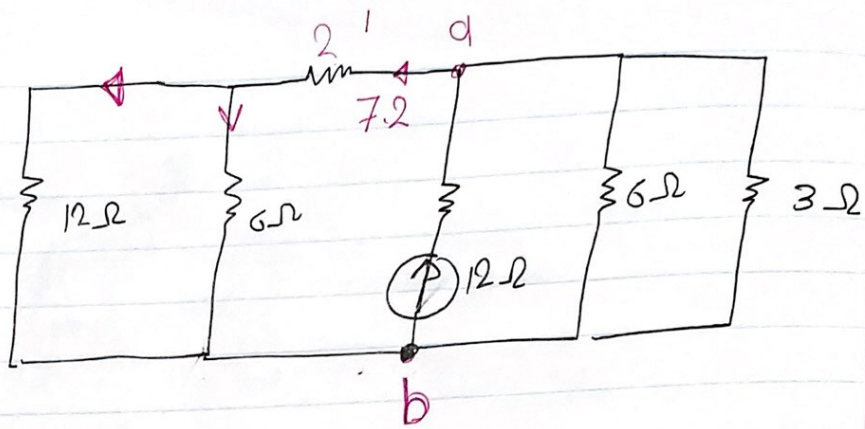 2 1 a
7.2
12 Ω
6 Ω
12 Ω
6 Ω
3 Ω
b